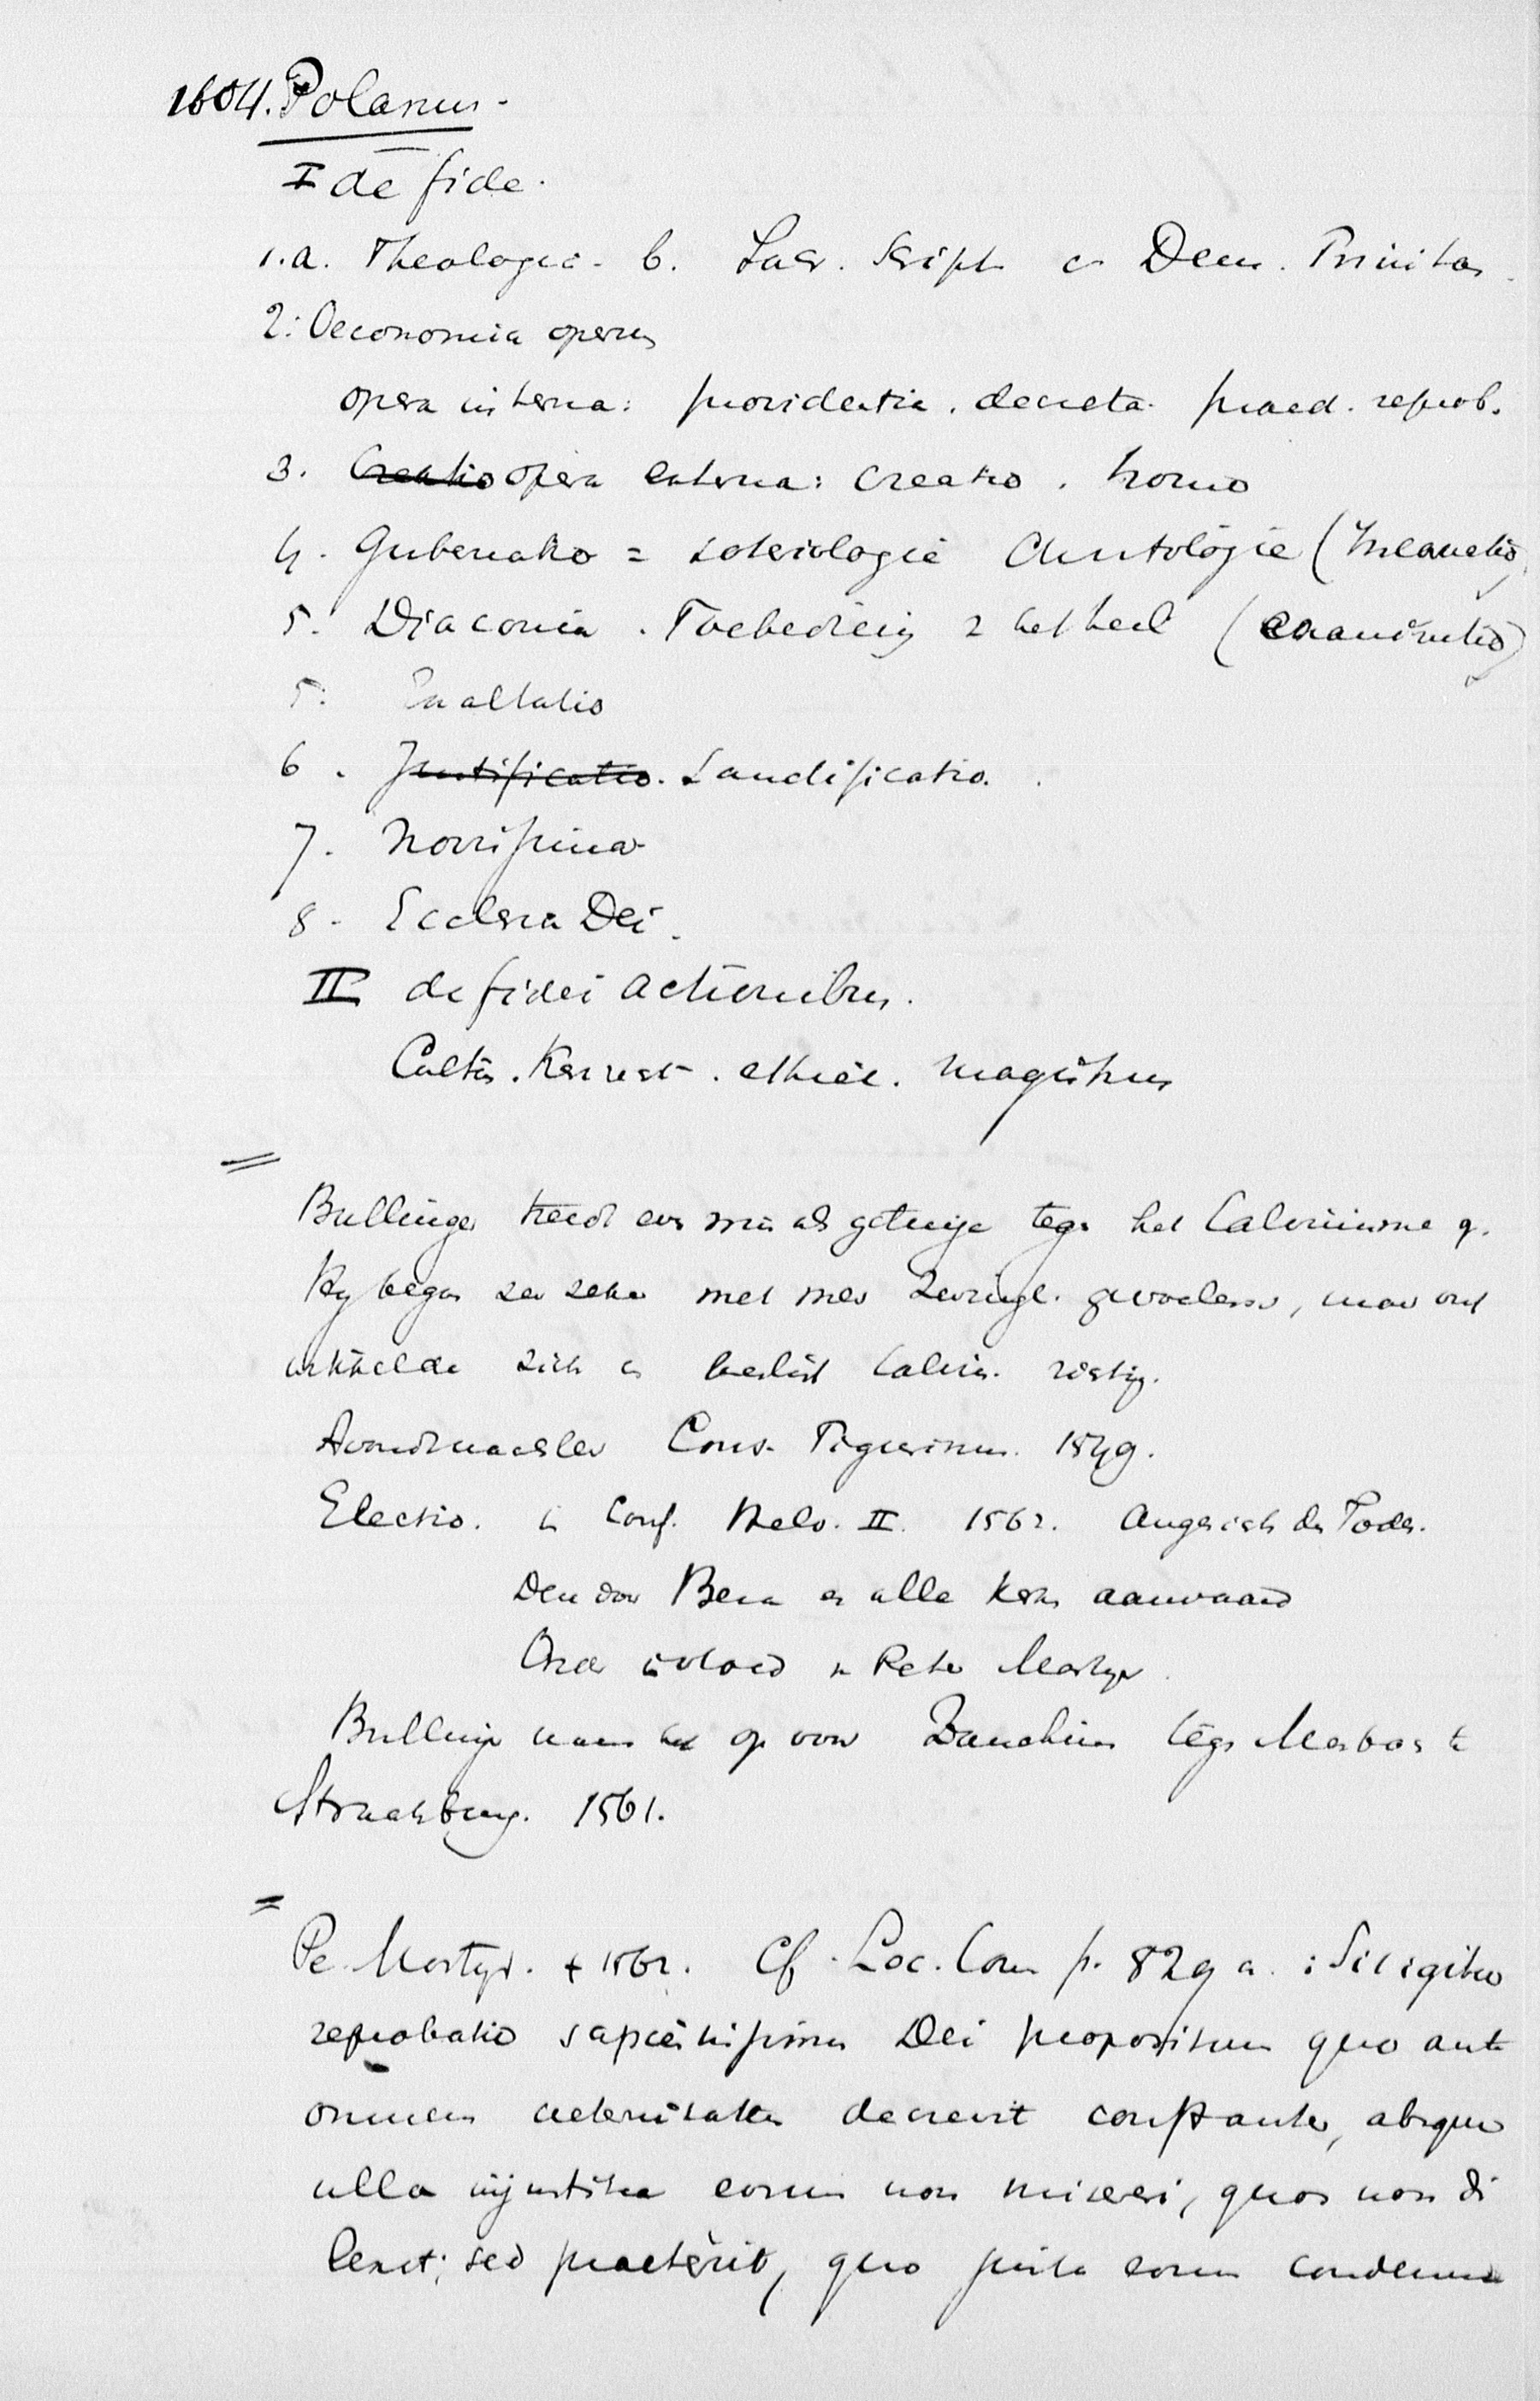 1604. Polanus.
I de fide.
1.a. Theologia. b. Sacr. Script. c. Deus. Trinitas.
2: Oeconomia operum
opera interna: providentia. decreta. praed. reprob.
3. Creatio opera externa: creatio. homo
4. Gubernatio = soteriologie Christologie (Incarnatio)
5. Diaconia. Toebediening v het heil (exaninitio)
5. Exaltatio
6. Justificatio. Sanctificatio.
7. Novissima
8. Ecclesia Dei.
II de fidei actionibus.
Cultus. Kerkrest. ethiek. magistrus
Bullinger treedt als getuige tegen het Calvinisme
begon zeer zeker met meer Zwingl. gevoelens, maar ont
wikkelde zich in beslist Calvin. richting.
Avondmaalsleer Cons. Tigurinus. 1549.
Electio. in Conf. Helv. II. 1562. Angesicht des Todes.
Den door Beza en alle kerken aanvaard
Onder invloed v Peter Martyr.
Bullinger nam het op voor Zanchius tegen Marbach te
Strassburg. 1561.
Pe. Martyr. + 1562. Cf. Loc. Com p. 829 a. : Sit igitur
reprobatio sapientissimum Dei propositum quo ante
omnem aeternitatem decrevit constanter, absque
ulla injustitia eorum non misereri, quos non di
lexit; sed praeterit, quo juste eorum condemna